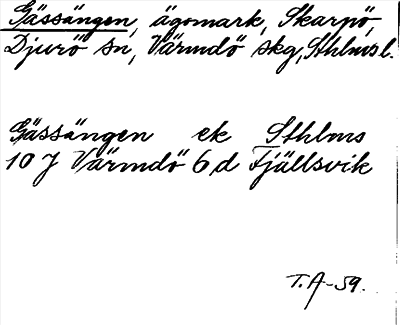 Gässängen, ägomark, Skarpö,
Djurö sn, Värmdö skg, Sthlms l.
Gässängen ek Sthlms
10 J Värmdö 6 d Fjällsvik
T.A-59.